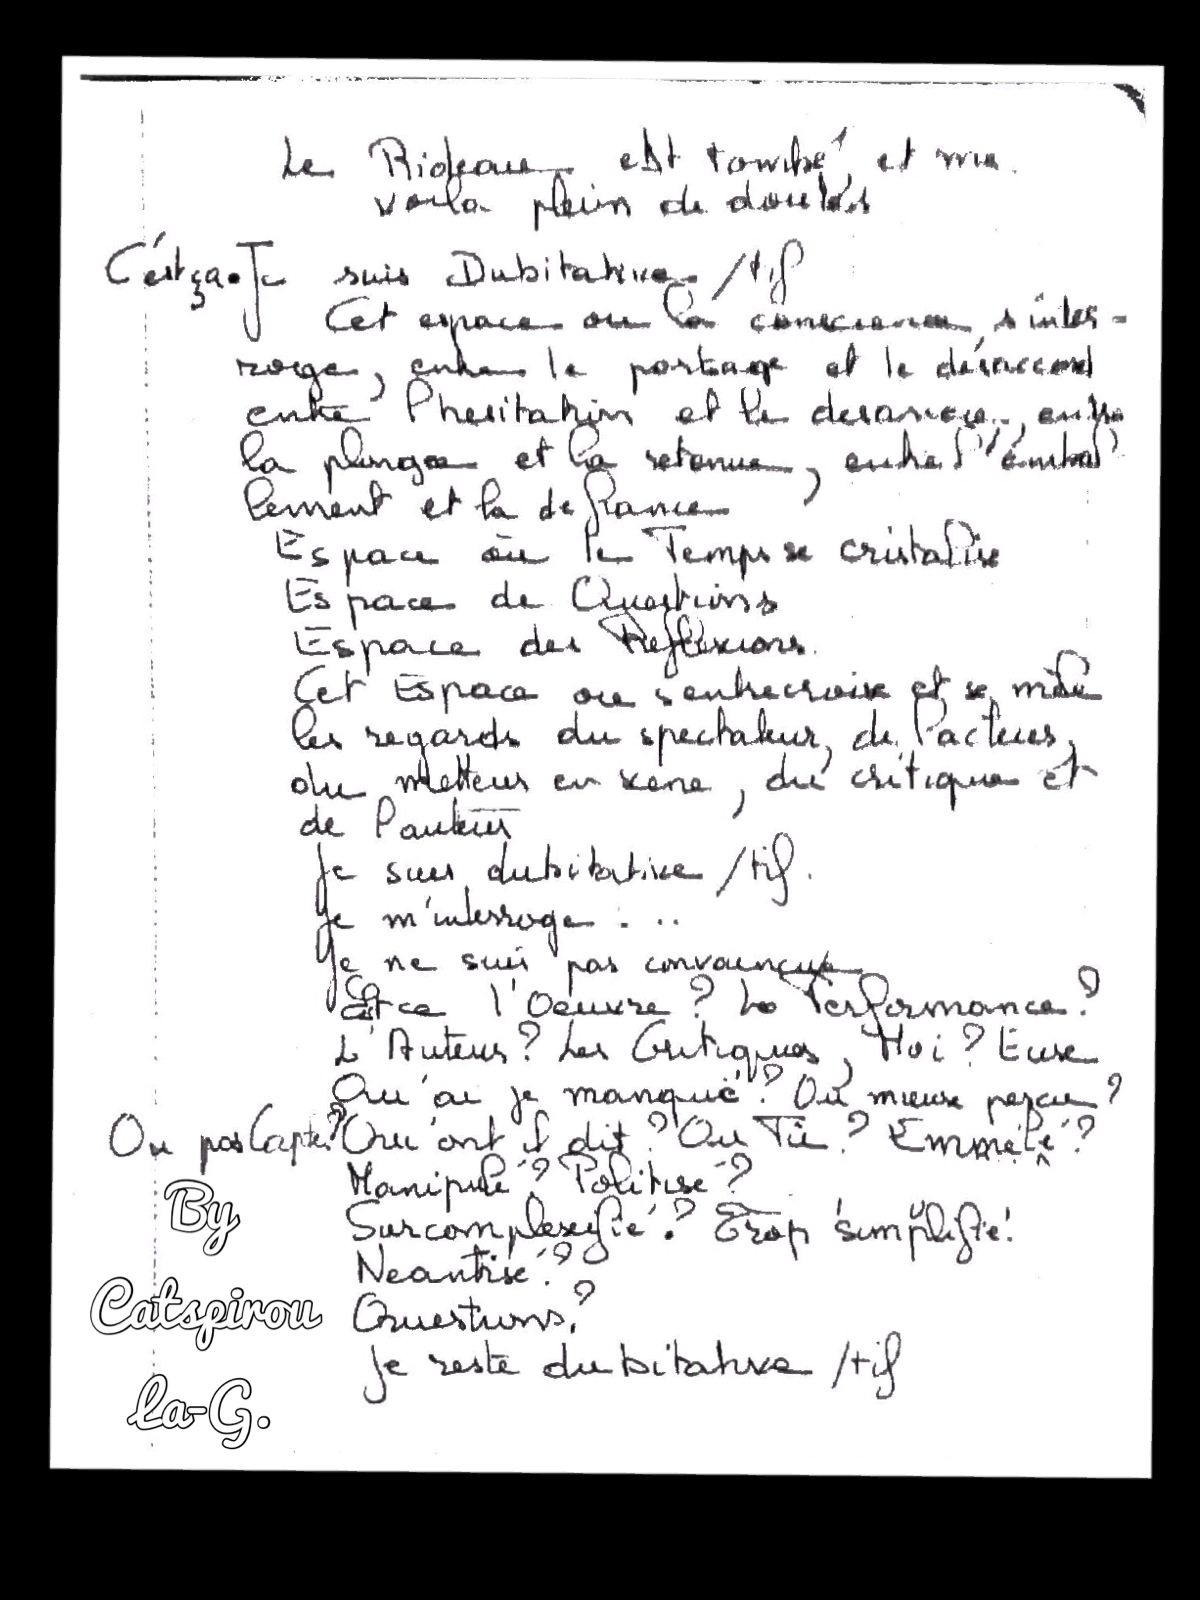 Le Rideau est tombé, et me
voila plein de doutes
C'est ça. Je suis Dubitative /tif
Cet espace ou la conscience s'inter-
roge, entre le partage et le désaccord
entre l'hesitation et le desaveu, entre
la plongée et la retenue, entre l'embal
lement et la defiance
Espace où le Temps se cristalise
Espace de Questions
Espace des Reflexions.
Cet Espace ou s'entrecroise et se mêle
les regards du spectateur, de l'acteur,
du metteur en scene, du critique et
de l'auteur
Je suis dubitative /tif.
Je m'interroge . ..
Je ne suis pas convaincue
Est ce l'Oeuvre? La Performance?
L'Auteur? Les Critiques, Moi? Euse
Qu'ai je manqué? Ou mieux percu?
Ou pas Capter? Qu'ont il dit? Ou Tü? Emmêlé?
Manipulé? Politisé?
Surcomplexifié? Trop simplifié!
Neantisé?
Questions?
Je reste dubitative /tif
By
Catspirou
la-G.